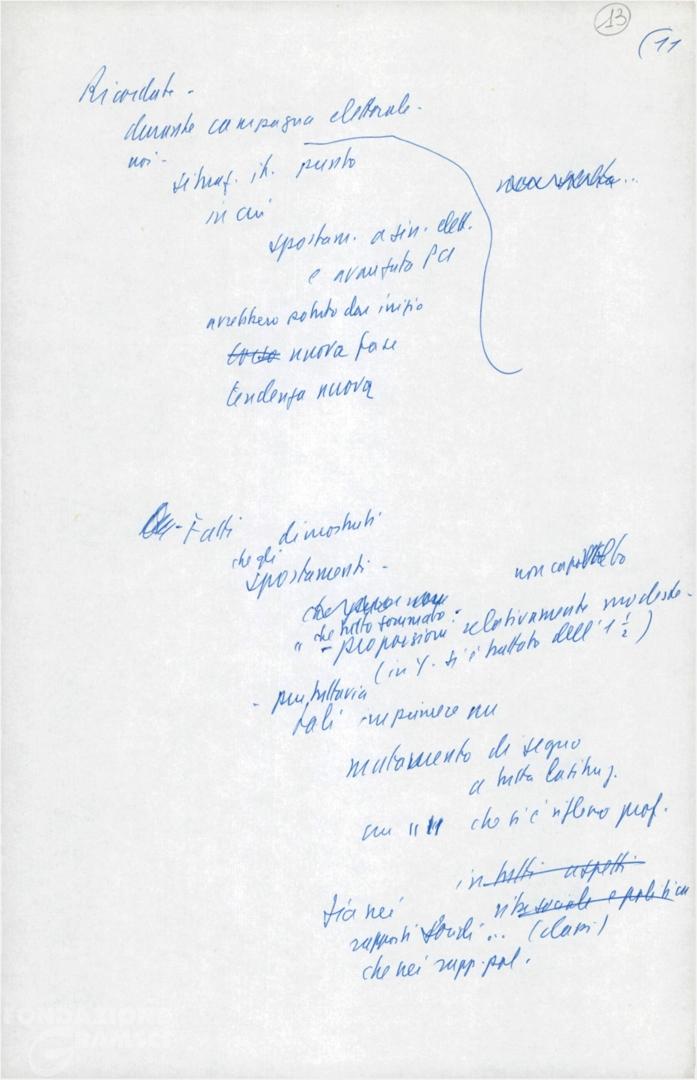 13
(11
Ricordate -
durante campagna elettorale -
noi -
situaz. it. punto
in cui
spostam. a sin. elett.
e avanzata PCI
avrebbero potuto dare inizio
nuova fase
tendenza nuova
- Fatti dimostrati
che gli
spostamenti -
non
che tutto sommato -
- proporzioni relativamente modeste -
(in % si è trattato dell' 1 1/2)
- pur tuttavia
tali imprimere un
mutamento di segno
a tutta la situaz.
un " " che si è riflesso prof.
in tutti aspetti
vita sociale e politica
sia nei
rapporti sociali ... (classi)
che nei rapp. pol.
FONDAZIONE
GRAMSCI